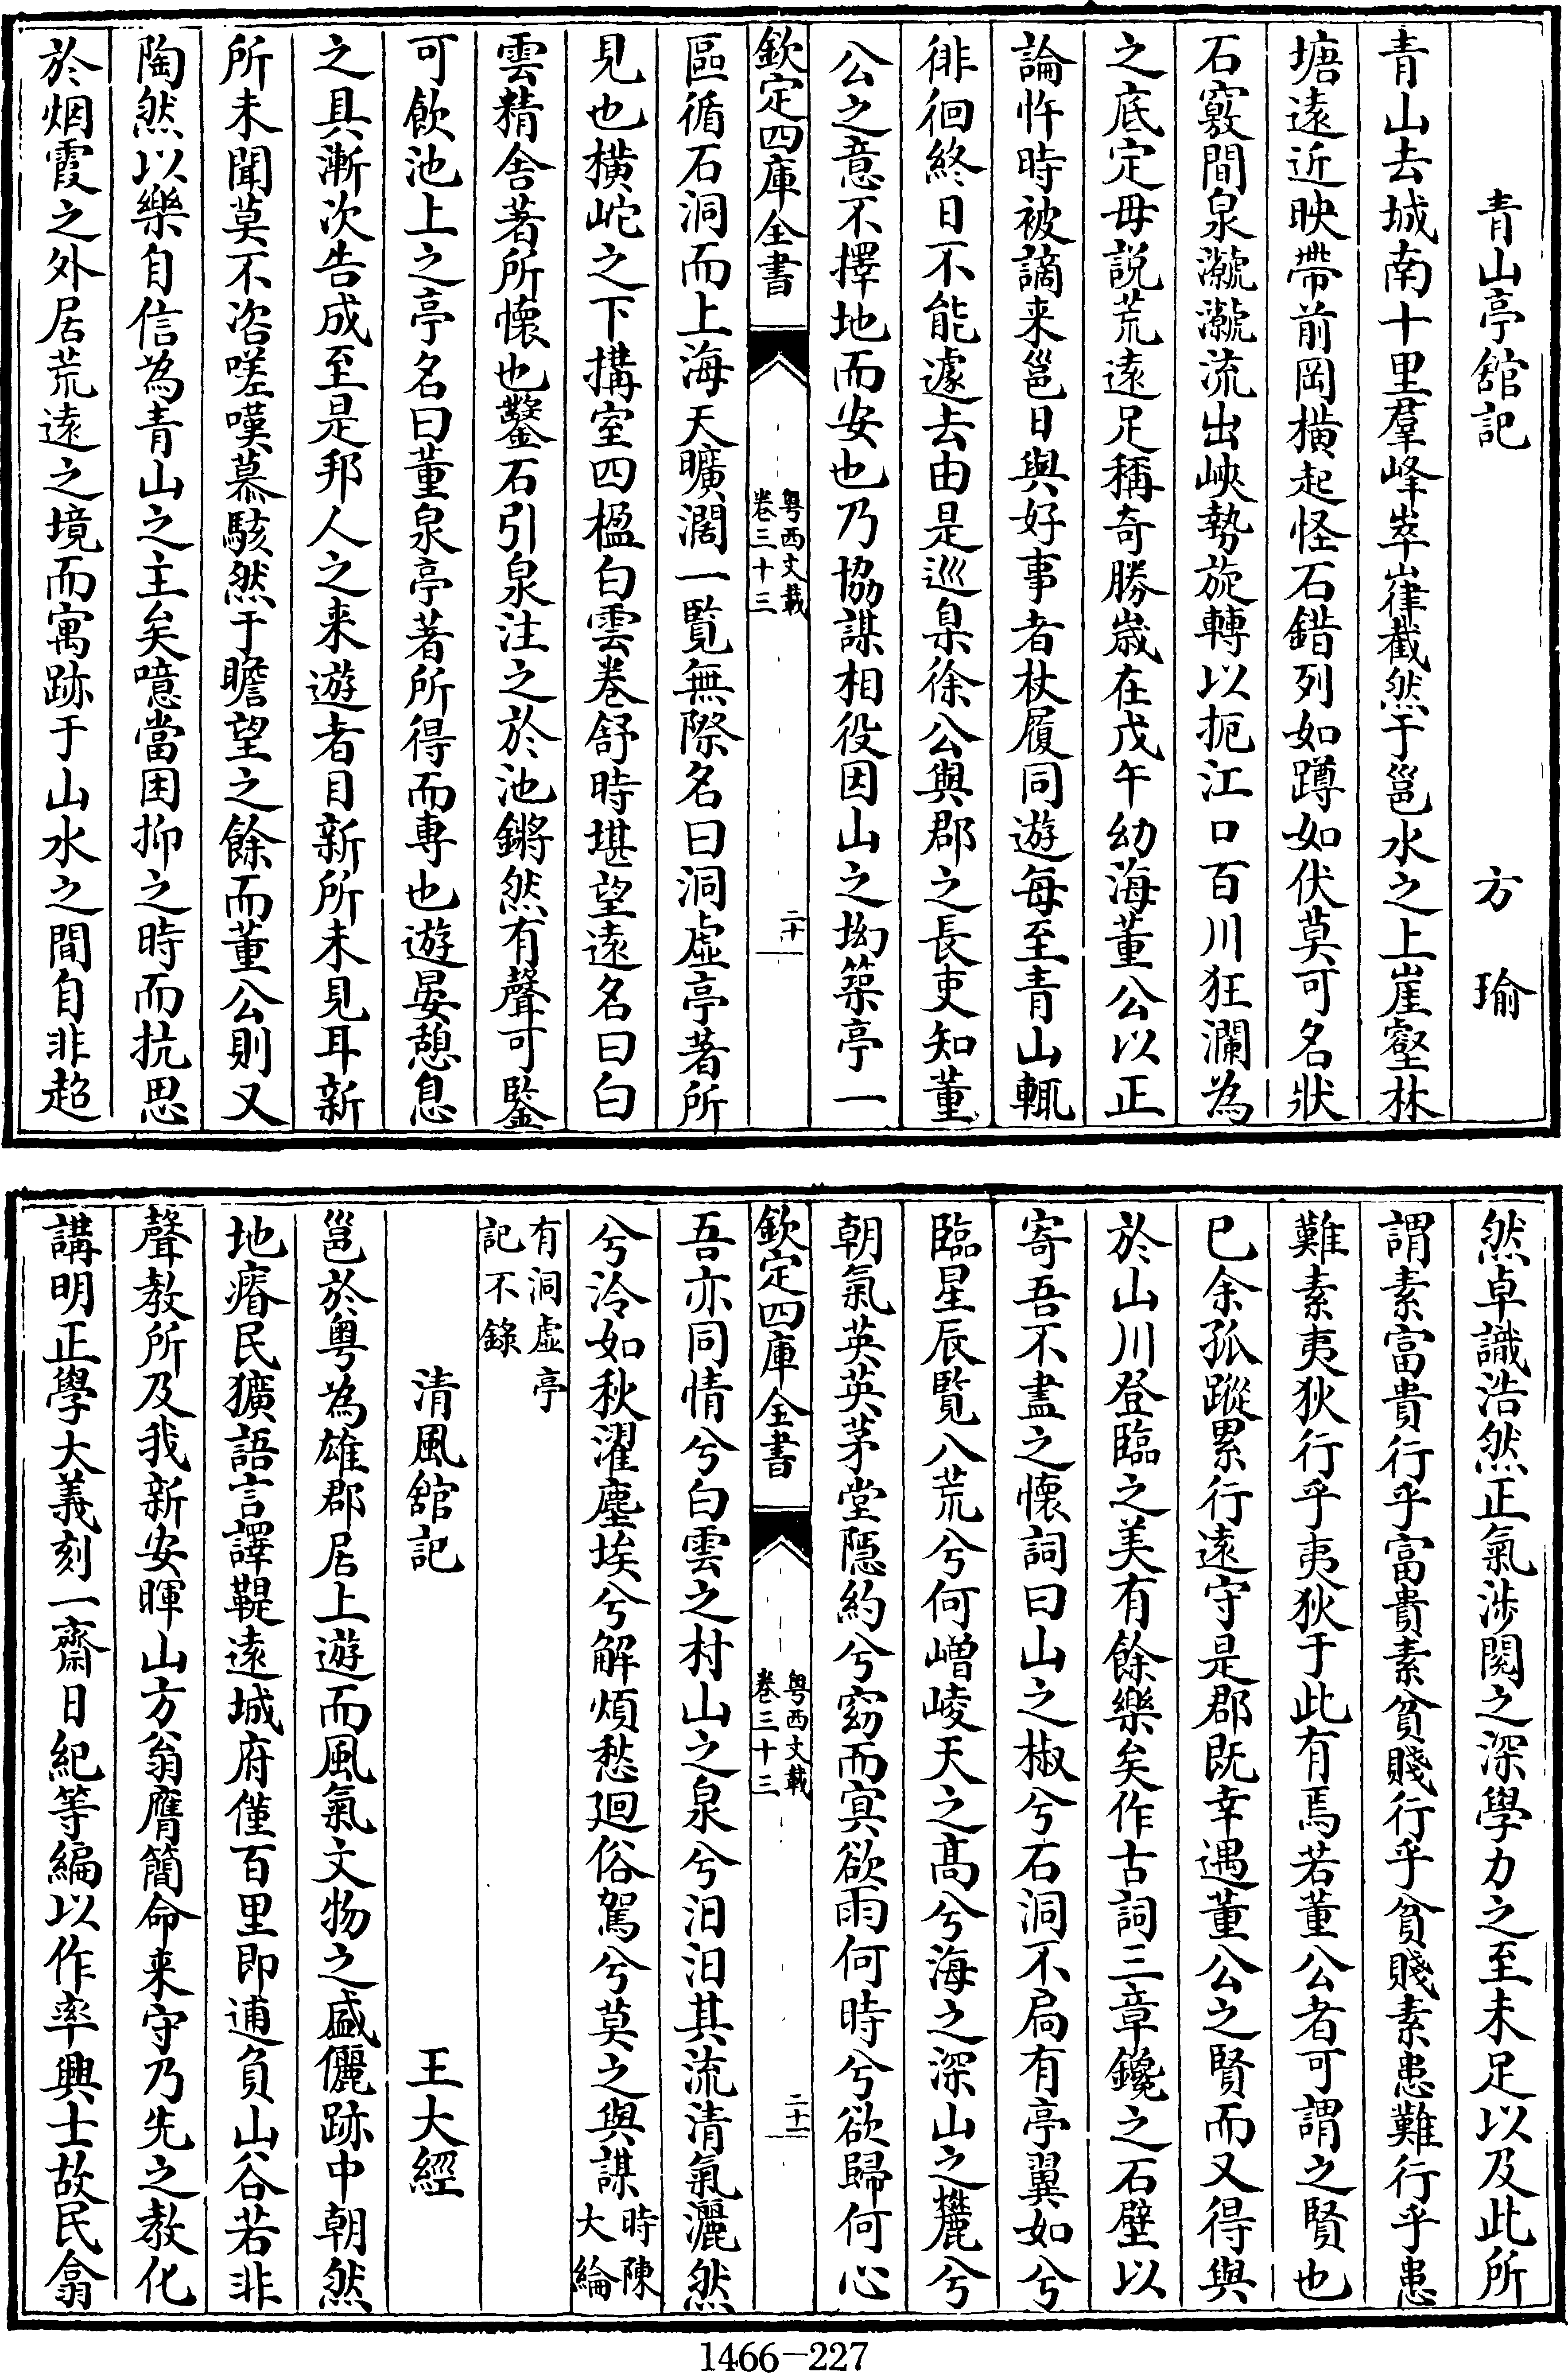 青山亭舘記　　　　　方　瑜
青山去城南十里羣峰崒嵂截然于邕水之上崖壑林
塘遠近映帶前岡橫起怪石錯列如蹲如伏莫可名狀
石竅間泉㶁㶁流出峽勢旋轉以扼江口百川狂瀾為
之底定毋説荒遠足稱奇勝嵗在戊午幼海董公以正
論忤時被謫来邕日與好事者杖履同遊每至青山輒
徘徊終日不能遽去由是巡臬徐公與郡之長吏知董
公之意不擇地而安也乃協謀相役因山之坳築亭一
欽定四庫全書
粤西文載
卷三十三
二十
區循石洞而上海天曠濶一覧無際名曰洞虛亭著所
見也橫岮之下搆室四楹白雲卷舒時堪望遠名曰白
雲精舎著所懐也鑿石引泉注之於池鏘然有聲可鑒
可飲池上之亭名曰董泉亭著所得而専也遊晏憩息
之具漸次告成至是邦人之来遊者目新所未見耳新
所未聞莫不咨嗟嘆慕駭然于瞻望之餘而董公則又
陶然以樂自信為青山之主矣噫當困抑之時而抗思
於烟霞之外居荒逺之境而寓跡于山水之間自非超
然卓識浩然正氣涉閱之深學力之至未足以及此所
謂素富貴行乎富貴素貧賤行乎貧賤素患難行乎患
難素夷狄行乎夷狄于此有焉若董公者可謂之賢也
已余孤蹤累行遠守是郡既幸遇董公之賢而又得與
於山川登臨之美有餘樂矣作古詞三章鑱之石壁以
寄吾不盡之懐詞曰山之椒兮石洞不扃有亭翼如兮
臨星辰覧八荒兮何嶒崚天之髙兮海之深山之麓兮
朝氣英英茅堂隱約兮窈而㝠欲雨何時兮欲歸何心
欽定四庫全書
粤西文載
卷三十三
二十一
吾亦同情兮白雲之村山之泉兮汨汨其流清氣灑然
兮泠如秋濯塵埃兮解煩愁廻俗駕兮莫之與謀時陳大綸
有洞虛亭
記不錄
清風舘記　　　　　王大經
邕於粤為雄郡居上遊而風氣文物之盛儷跡中朝然
地瘠民獷語言譯鞮遠城府僅百里即逋負山谷若非
聲教所及我新安暉山方翁膺簡命来守乃先之教化
講明正學大義刻一齋日紀等編以作率興士故民翕
1466-227